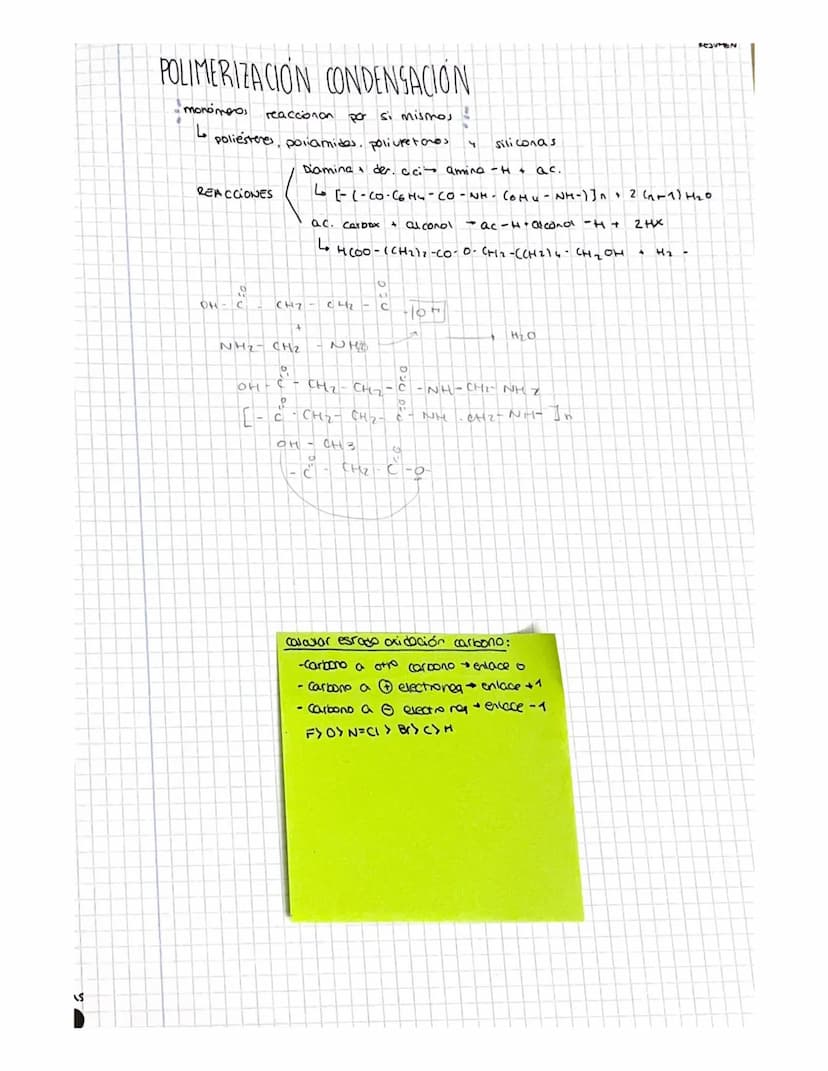 RESUMEN
POLIMERIZACIÓN CONDENSACIÓN
monómeros reaccionan por si mismos
↳ poliésteres, poliamidas, poliuretanos y siliconas
REACCIONES
Diamina + der. aci → amina -H + ac.
↳ [-(-CO-C6H4-CO-NH-C6H4-NH-)]n + 2(n-1)H2O
ac. carbox + alcohol → ac-H + alcohol -H + 2HX
↳ HCOO-(CH2)2-CO-O-CH2-(CH2)4-CH2OH + H2 -
O O
OH-C - CH2 - CH2 - C -OH
+
NH2-CH2 - NH2 → H2O
O O
OH-C - CH2-CH2-C-NH-CH2-NH2
O O
[-C-CH2-CH2-C-NH-CH2-NH-]n
OH - CH3
O O
-C - CH2-C-O-
calcular estado oxidación carbono:
-Carbono a otro carbono → enlace 0
- Carbono a ⊕ electroneg → enlace +1
- Carbono a ⊖ electroneg → enlace -1
F>O>N=Cl>Br>C>H
AS